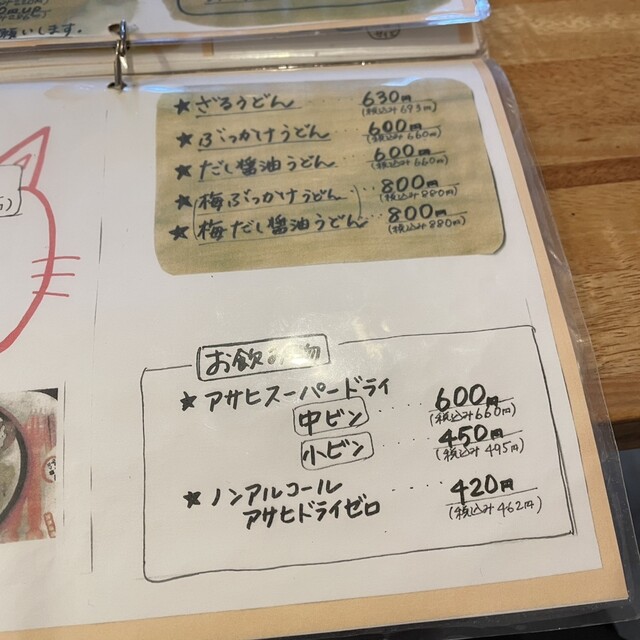 願いします。
★ざるうどん ‥‥ 630円
(税込み693円)
★ぶっかけうどん ‥‥ 600円
(税込み660円)
★だし醤油うどん ‥‥ 600円
(税込み660円)
★梅ぶっかけうどん ‥800円
(税込み880円)
★梅だし醤油うどん ‥800円
(税込み880円)
お飲み物
★アサヒスーパードライ
中ビン ‥‥ 600円
(税込み660円)
小ビン ‥‥ 450円
(税込み495円)
★ノンアルコール ‥‥ 420円
アサヒドライゼロ (税込み462円)